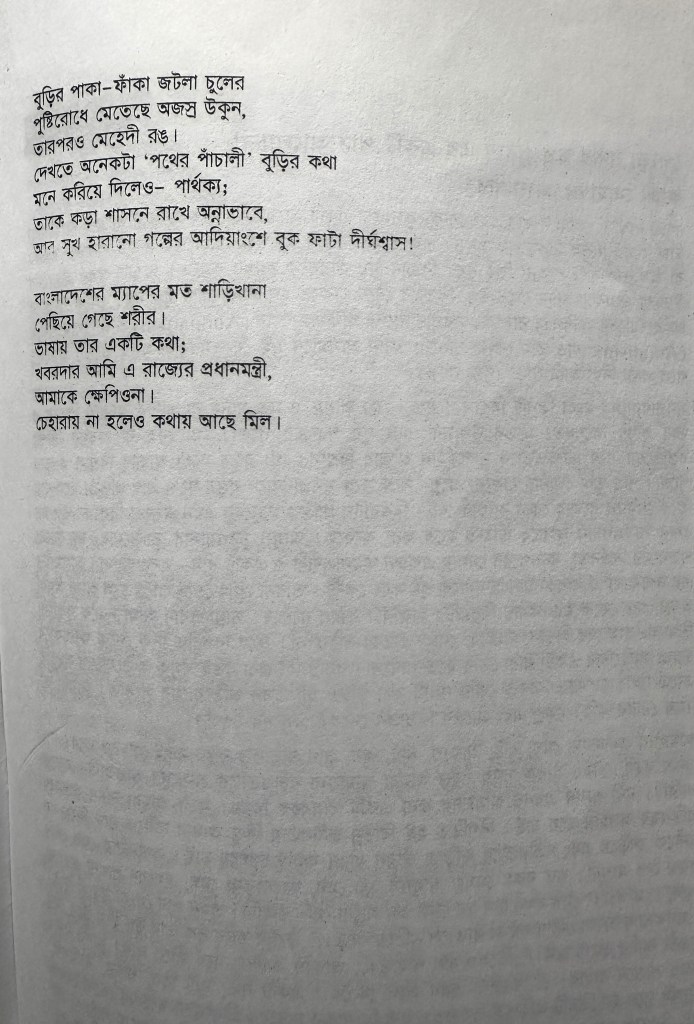 বুড়ির পাকা-ফাঁকা জটলা চুলের
পুষ্টিরোধে মেতেছে অজস্র উকুন,
তারপরও মেহেদী রঙ।
দেখতে অনেকটা ‘পথের পাঁচালী’ বুড়ির কথা
মনে করিয়ে দিলেও- পার্থক্য;
তাকে কড়া শাসনে রাখে অন্নাভাবে,
আর সুখ হারানো গল্পের আদিয়াংশে বুক ফাটা দীর্ঘশ্বাস!
বাংলাদেশের ম্যাপের মত শাড়িখানা
পেছিয়ে গেছে শরীর।
ভাষায় তার একটি কথা;
খবরদার আমি এ রাজ্যের প্রধানমন্ত্রী,
আমাকে ক্ষেপিওনা।
চেহারায় না হলেও কথায় আছে মিল।